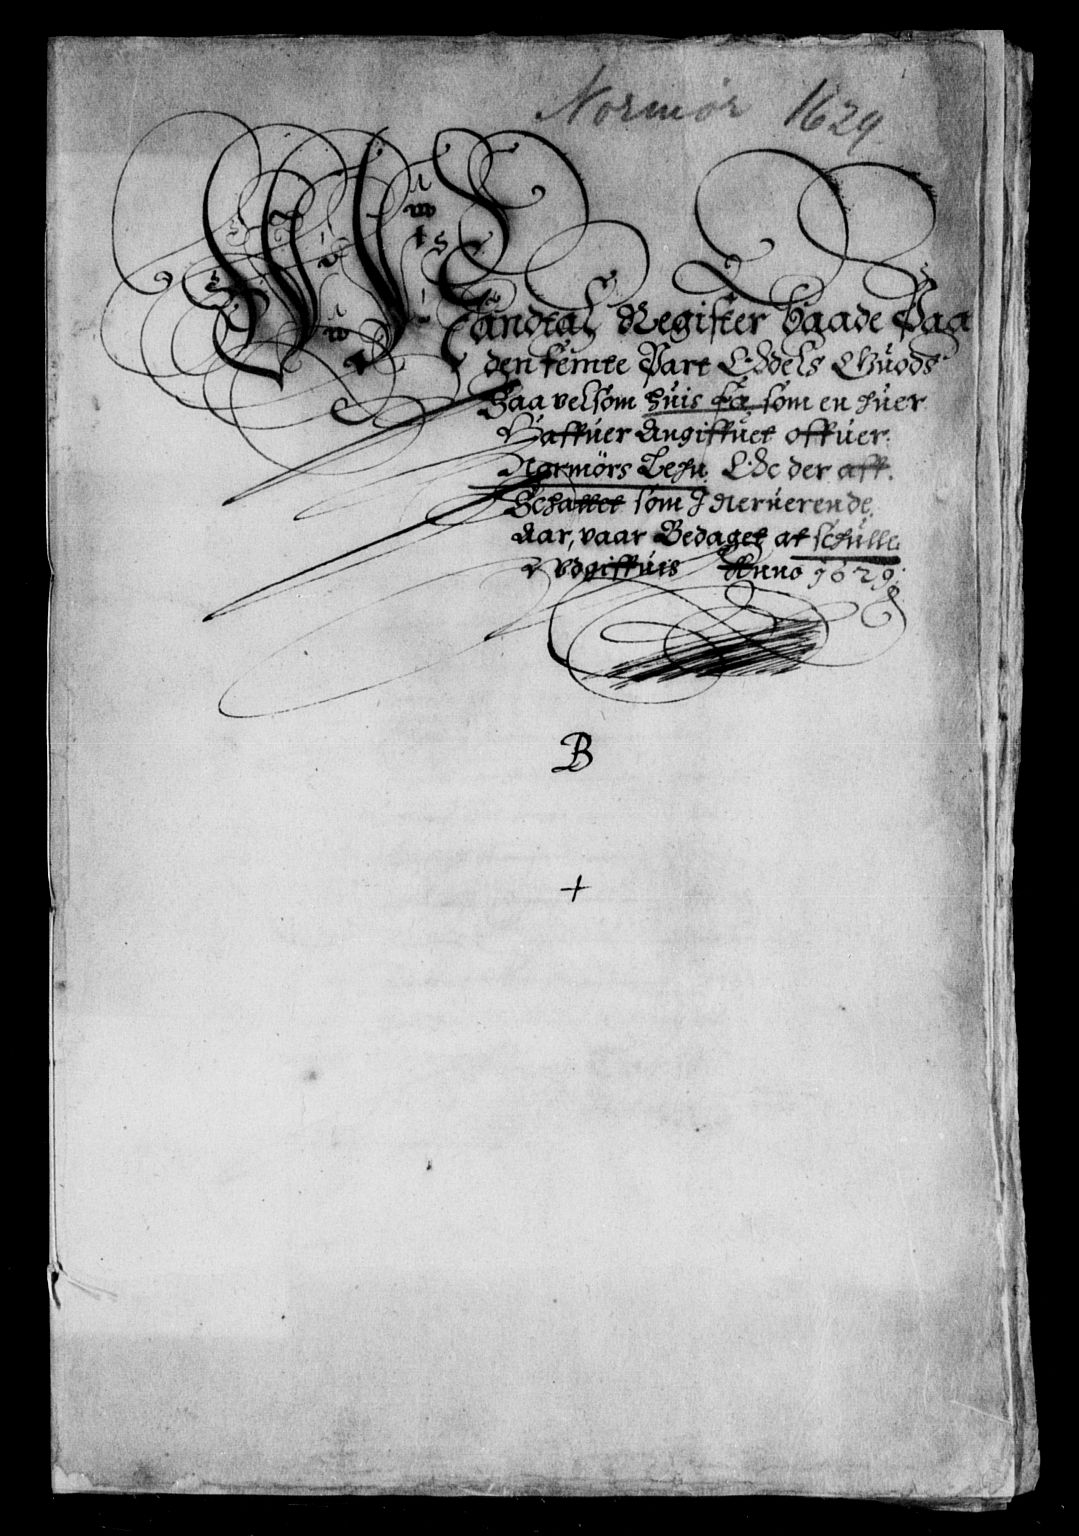 Normør 1629.
Mandtal Register baade Paa
den femte Part Eddels Guods
Saa velsom huis som en huer
Haffuer Angiffuet offuer
Normörs Lehn Etc der aff
Schattet som I Neruerende
Aar, vaar Bedaget at schulle
Vdgiffuis Anno 1629.
B
+